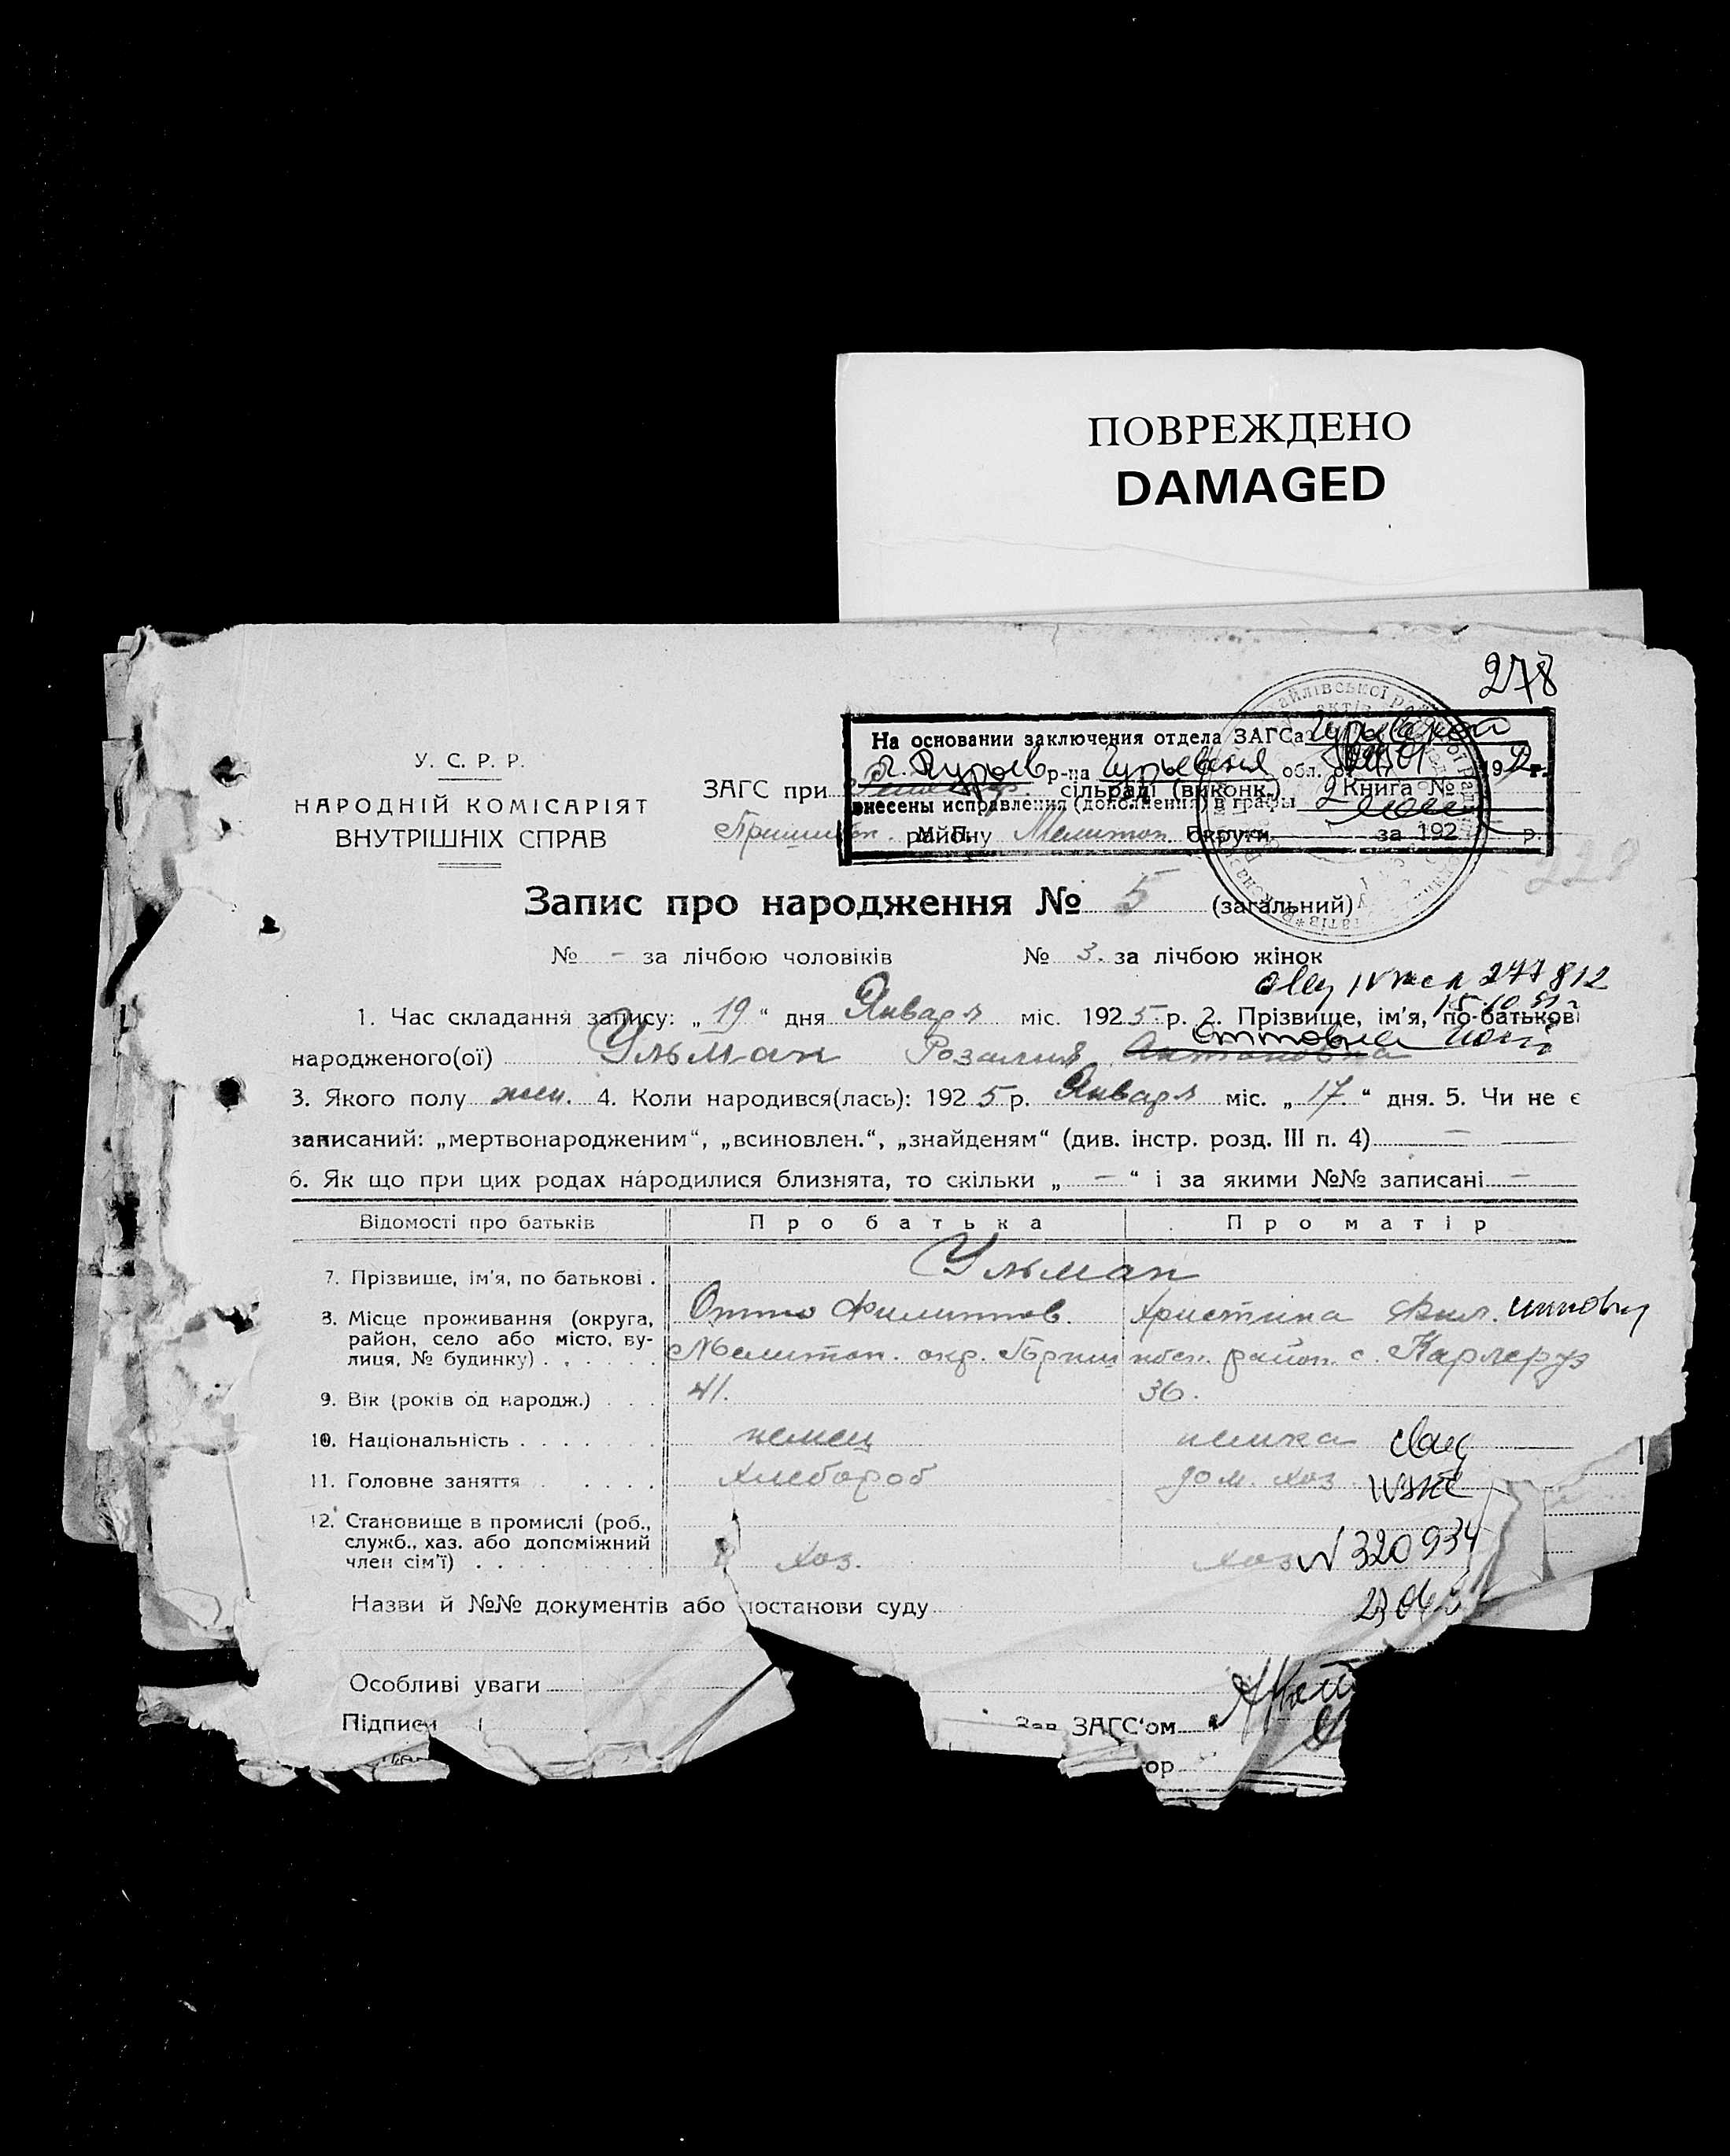 ПОВРЕЖДЕНО
DAMAGED
278
У. С. Р. Р.
НАРОДНІЙ КОМІСАРІЯТ
ВНУТРІШНІХ СПРАВ
На основании заключения отдела ЗАГСа
г. Гурьев р-на Гурьевской обл. от 19 г.
ЗАГС при сільраді (виконк.) Книга №
внесены исправления (дополнения) в графы 2
Пришиб. району Мелитоп. округи за 192 р.
М. П.
228
Запис про народження № 5 (загальний)
№ - за лічбою чоловіків № 3. за лічбою жінок
247812
1. Час складання запису: „ 19 “ дня Января міс. 1925 р. 2. Прізвище, ім'я, по-батькові
народженого(ої) Ульман Розалия Антоновна Оттовна
3. Якого полу жен. 4. Коли народився(лась): 1925 р. Января міс. „ 17. “ дня. 5. Чи не є
записаний: „мертвонародженим“, „всиновлен.“, „знайденям“ (див. інстр. розд. III п. 4) —
6. Як що при цих родах народилися близнята, то скільки „ — “ і за якими №№ записані —
Відомості про батьків Про батька Про матір
7. Прізвище, ім'я, по батькові . Ульман
Отто Филиппов. Христина Фил. иповн
8. Місце проживання (округа, район, село або місто, вулиця, № будинку) . . . . . . Мелитоп. окр. Приш ибск. район. с. Карлсруэ
9. Вік (років од народж.) . . . 41. 36.
10. Національність . . . . . . . немец немка
11. Головне заняття . . . . хлебороб дом. хоз.
12. Становище в промислі (роб., служб., хаз. або допоміжний член сім'ї) . . . . . . . . . хоз. хоз
№ 320934
Назви й №№ документів або постанови суду
Особливі уваги
Підписи Зав ЗАГС'ом
ор